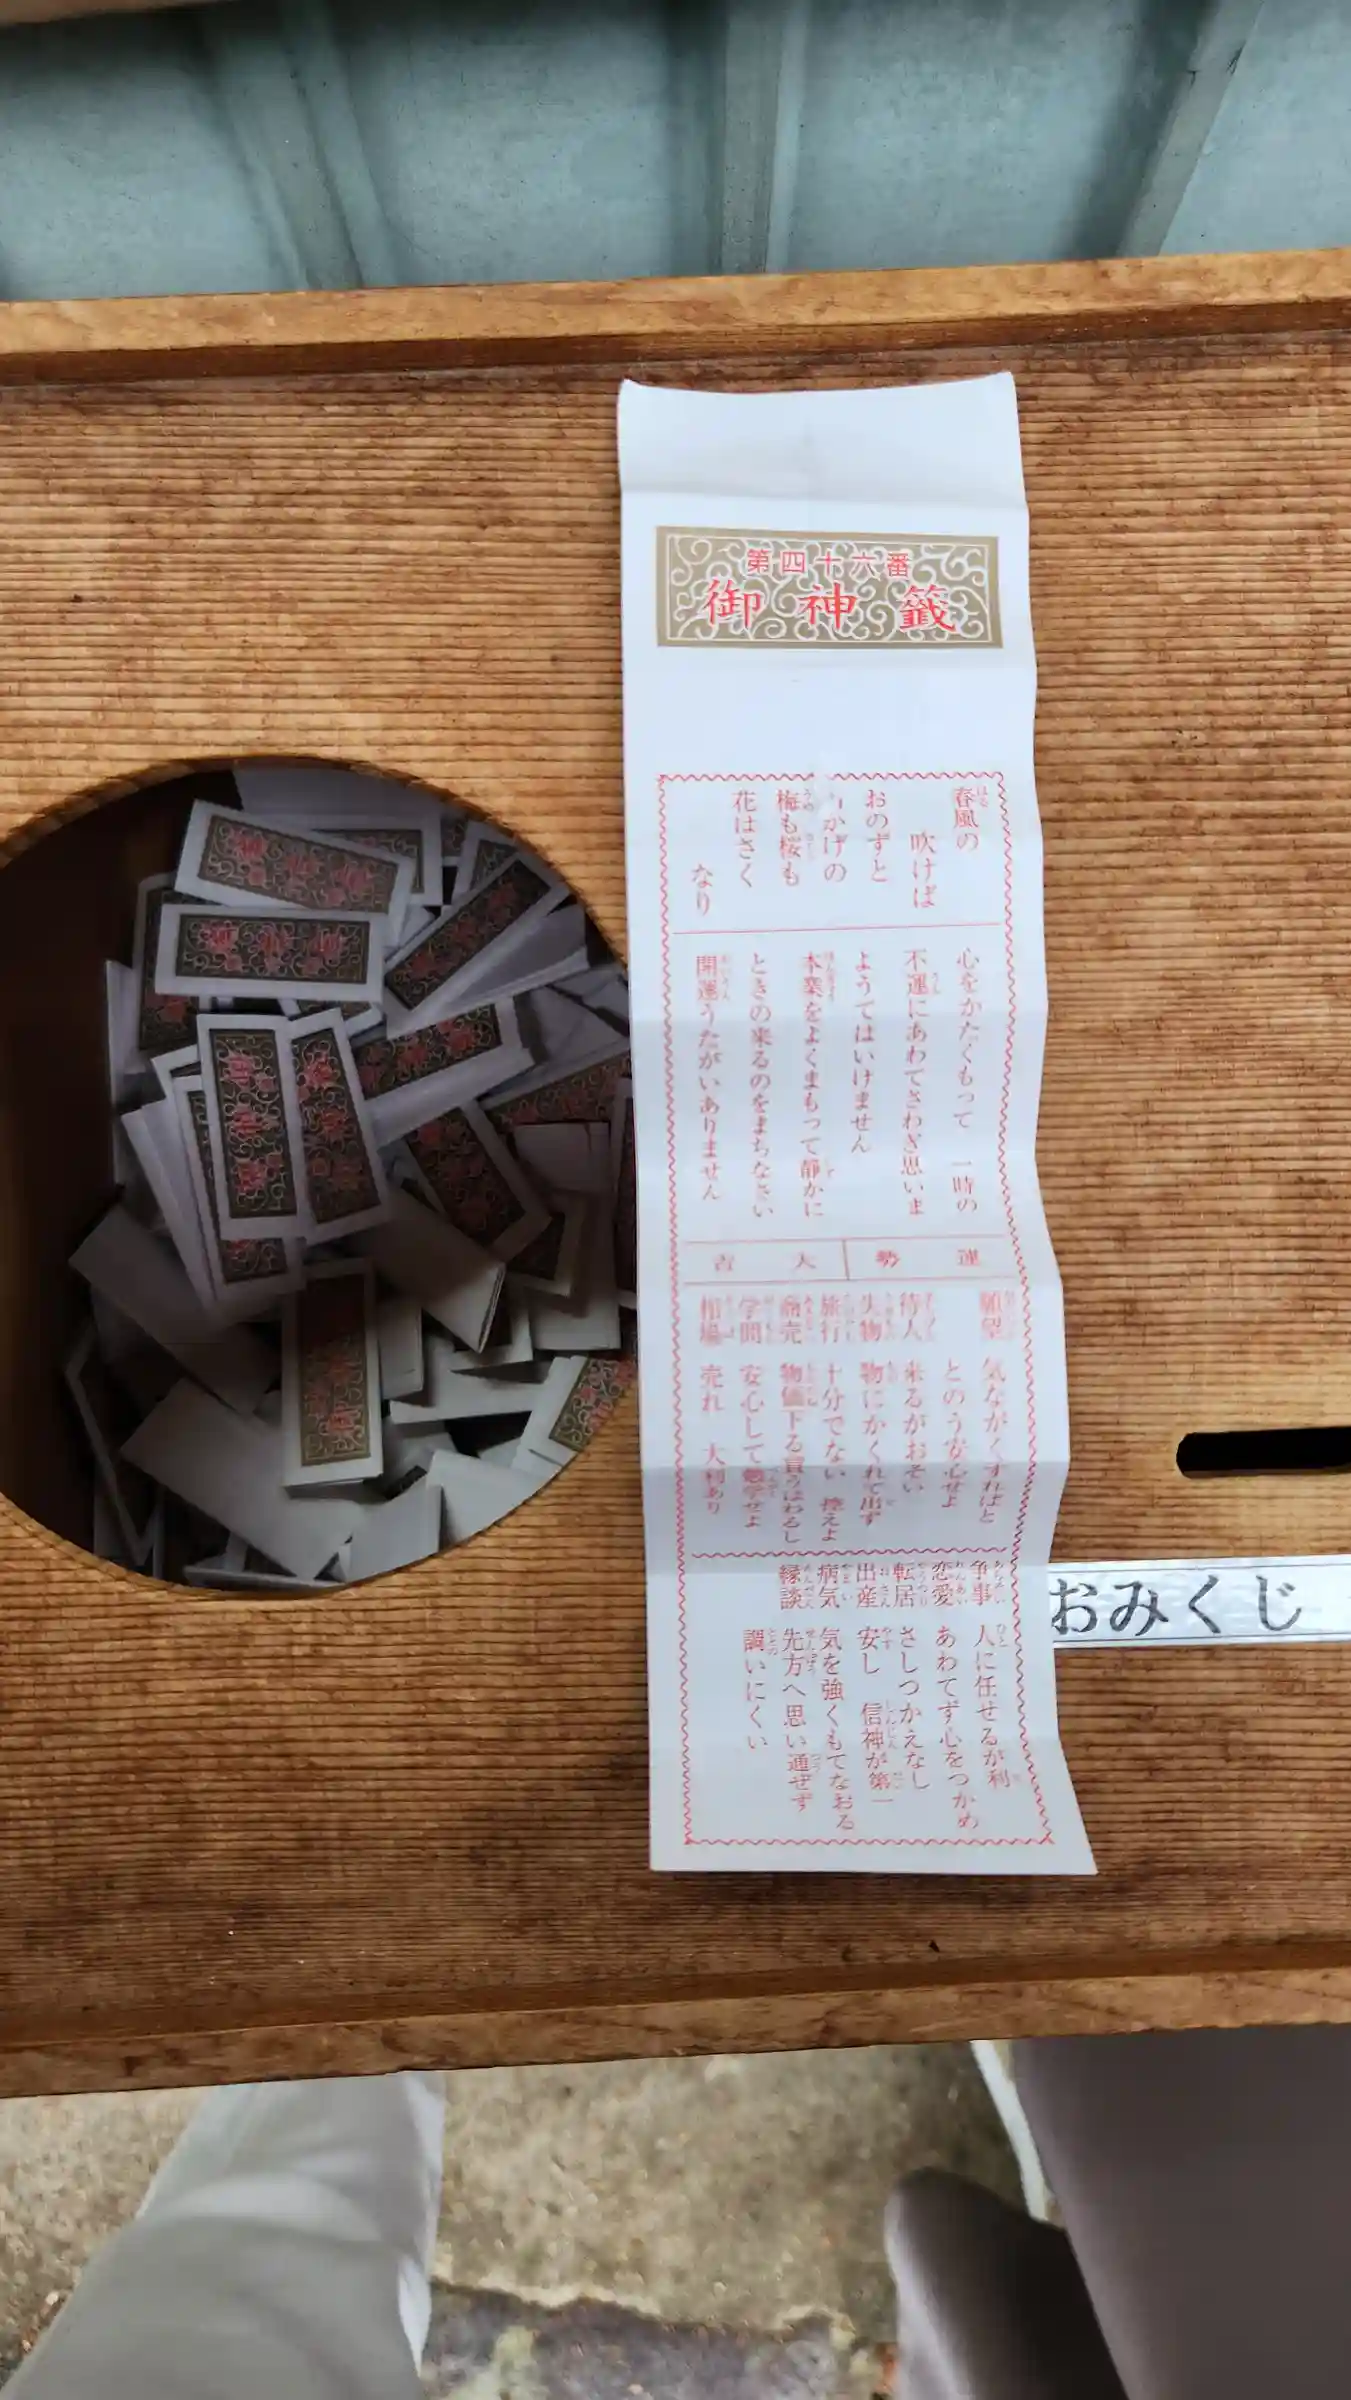 第四十六番
御神籤
春風の
吹けば
おのずと
かげの
梅も桜も
花はさく
なり
心をかたくもって 一時の
不運にあわてさわぎ思いま
ようてはいけません
本業をよくまもって静かに
ときの来るのをまちなさい
開運うたがいありません
運勢 大吉
願望 気ながくすればと
とのう安心せよ
待人 来るがおそい
失物 物にかくれて出ず
旅行 十分でない 控えよ
商売 物価下る買うはわるし
学問 安心して勉学せよ
相場 売れ 大利あり
争事 人に任せるが利
恋愛 あわてず心をつかめ
転居 さしつかえなし
出産 安し 信神が第一
病気 気を強くもてなおる
縁談 先方へ思い通ぜず
調いにくい
おみくじ